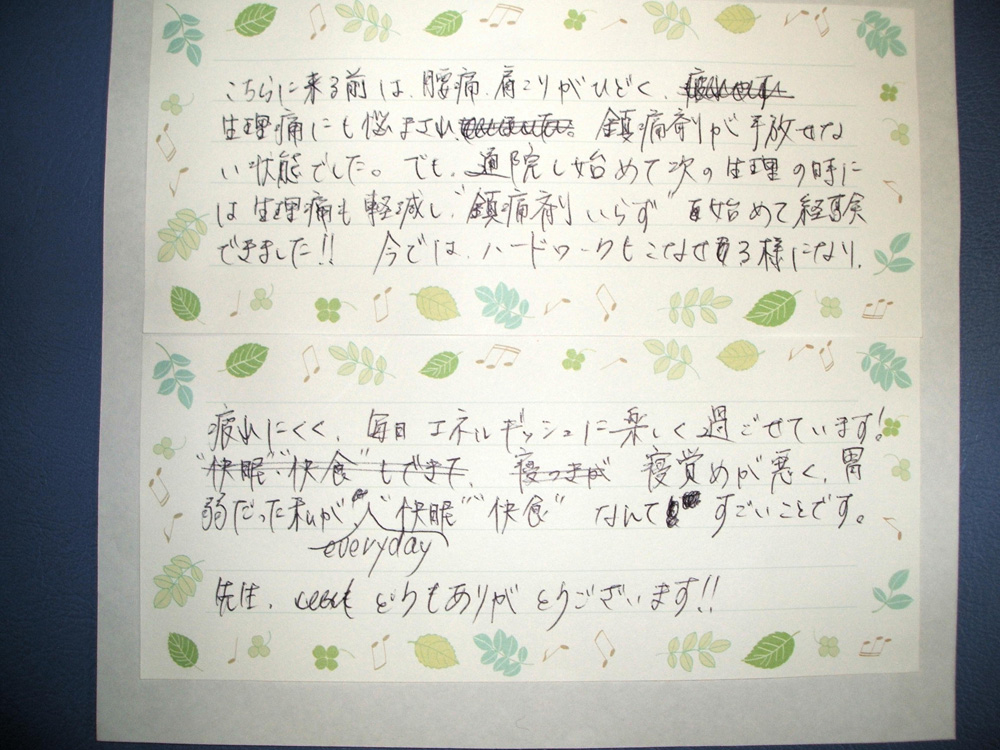 こちらに来る前は、腰痛、肩こりがひどく、
生理痛にも悩まされ 鎮痛剤が手放せな
い状態でした。でも、通院し始めて次の生理の時に
は生理痛も軽減し、"鎮痛剤いらず" 始めて経験
できました!! 今では、ハードワークもこなせる様になり、
疲れにくく、毎日エネルギッシュに楽しく過ごせています!
"快眠""快食"もできて、寝つきが 寝覚めが悪く、胃
弱だった私が、"快眠""快食"なんて すごいことです。
everyday
先生、どうもありがとうございます!!